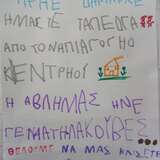 ΗΜΑΣΤΕ ΤΑ ΠΕΔΓΑ
ΑΠΟ ΤΟ ΝΑΠΙΑΓΟΓΗΟ
ΚΕΝΤΡΗΟΥ
Η ΑΒΛΗΜΑΣ ΗΝΕ
ΓΕΜΑΤΗ ΛΑΚΟΥΒΕΣ
ΘΕΛΟΥΜΕ ΝΑ ΜΑΣ